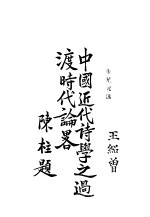 中國近代詩學之過
渡時代論畧
陳柱題
王紹曾